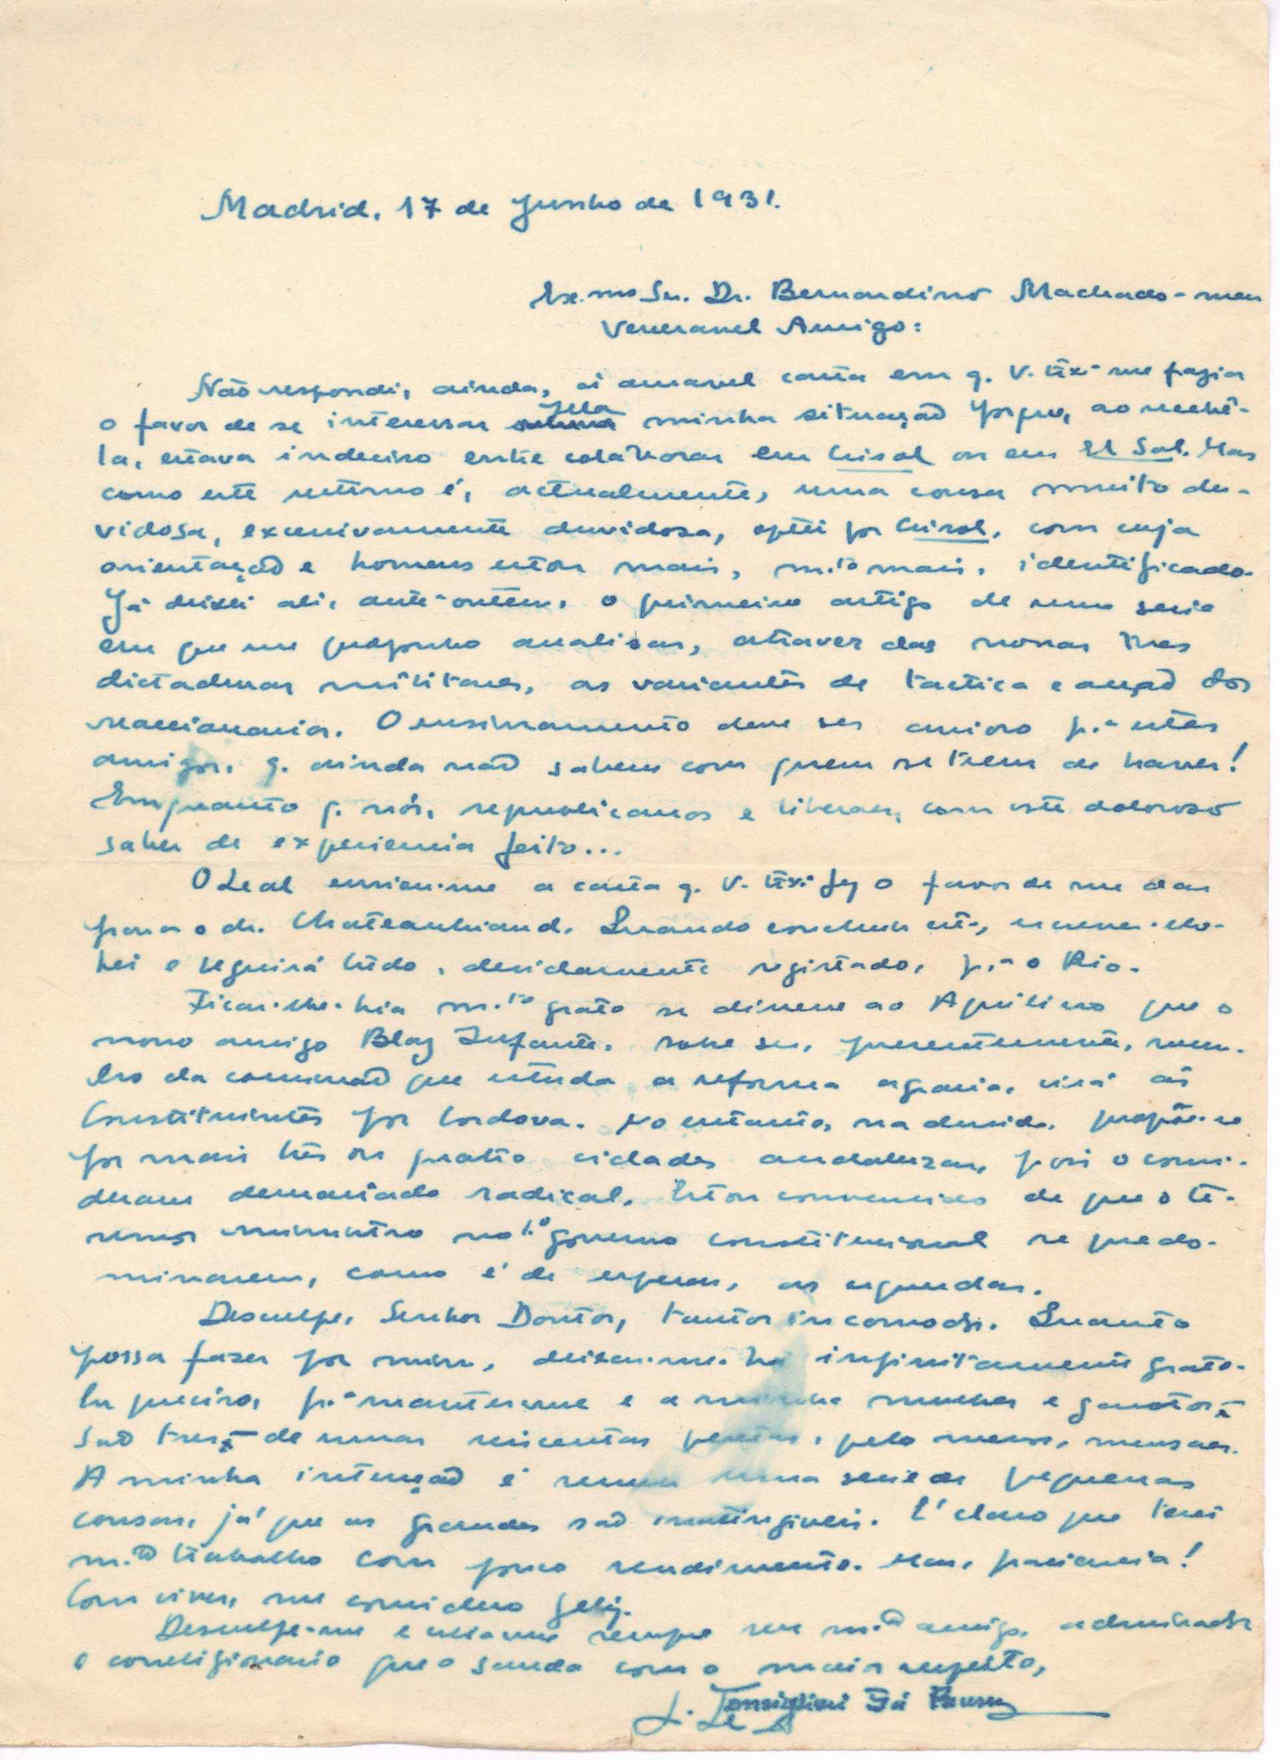 Madrid, 17 de Junho de 1931.
Ex.mo Snr. Dr. Bernardino Machado - meu
Veneravel Amigo:
Não respondi, ainda, á amavel carta em q. V. Exª me fazia
o favor de se interessar pela minha situação porque, ao recebê-
la, estava indeciso entre colaborar em Crisol ou em El Sol. Mas
como este ultimo é, actualmente, uma cousa muito du-
vidosa, excessivamente duvidosa, optei por Crisol, com cuja
orientação e homens estou mais, m.to mais, identificado.
Já deixei ali, ante-ontem, o primeiro artigo de uma serie
em que me proponho analisar, atravez das nossas tres
dictaduras militares, as variantes de tactica e acção dos
reaccionarios. O ensinamento deve ser curioso p.ª estes
amigos, q. ainda não sabem com quem se teem de haver!
Emquanto q. nós, republicanos e liberaes, com este doloroso
saber de experiencia feito...
O Leal enviou-me a carta q. V. Exª fez o favor de me dar
para o dr. Chateaubriand. Quando concluir este, escrever-lhe-
hei e seguirá tudo, devidamente registado, p.ª o Rio.
Ficar-lhe-hia m.to grato se dissesse ao Aquilino que o
nosso amigo Blaz Infante, sobre ser, presentemente, mem-
bro da comissão que estuda a reforma agraria, virá ás
Constituintes por Cordova. No entanto, na duvida, propõe-se
por mais três ou quatro cidades andaluzas, pois o consi-
deram demasiado radical. Estou convencido de que o te-
remos ministro no 1.º governo constitucional se predo-
minarem, como é de esperar, as esquerdas.
Desculpe, Senhor Doutor, tantos incomodos. Quanto
possa fazer por mim, deixar-me-ha infinitamente grato.
Eu preciso, p.ª manter-me e a minha mulher e garotos
são tres, de umas seiscentas pesetas, pelo menos, mensaes.
A minha intenção é reunir uma serie de pequenas
cousas, já que as grandes são inatingiveis. E' claro que terei
m.to trabalho com pouco rendimento. Mas, paciencia!
Com viver, me considero feliz.
Desculpe-me e creia-me sempre seu m.to amigo, admirador
e correligionario que o sauda com o maior respeito,
J. Consiglieri Sá Pereira